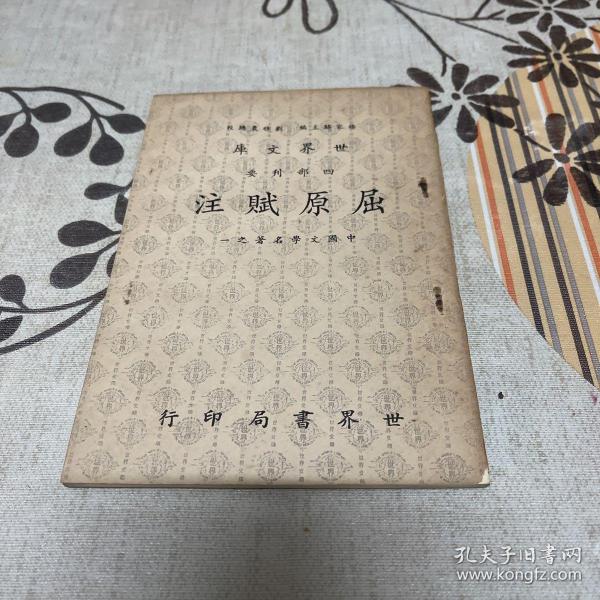 楊家駱主編 劉雅農總校
世界文庫
四部刊要
屈原賦注
中國文學名著之一
世界書局印行
孔夫子旧书网
www.kongfz.com